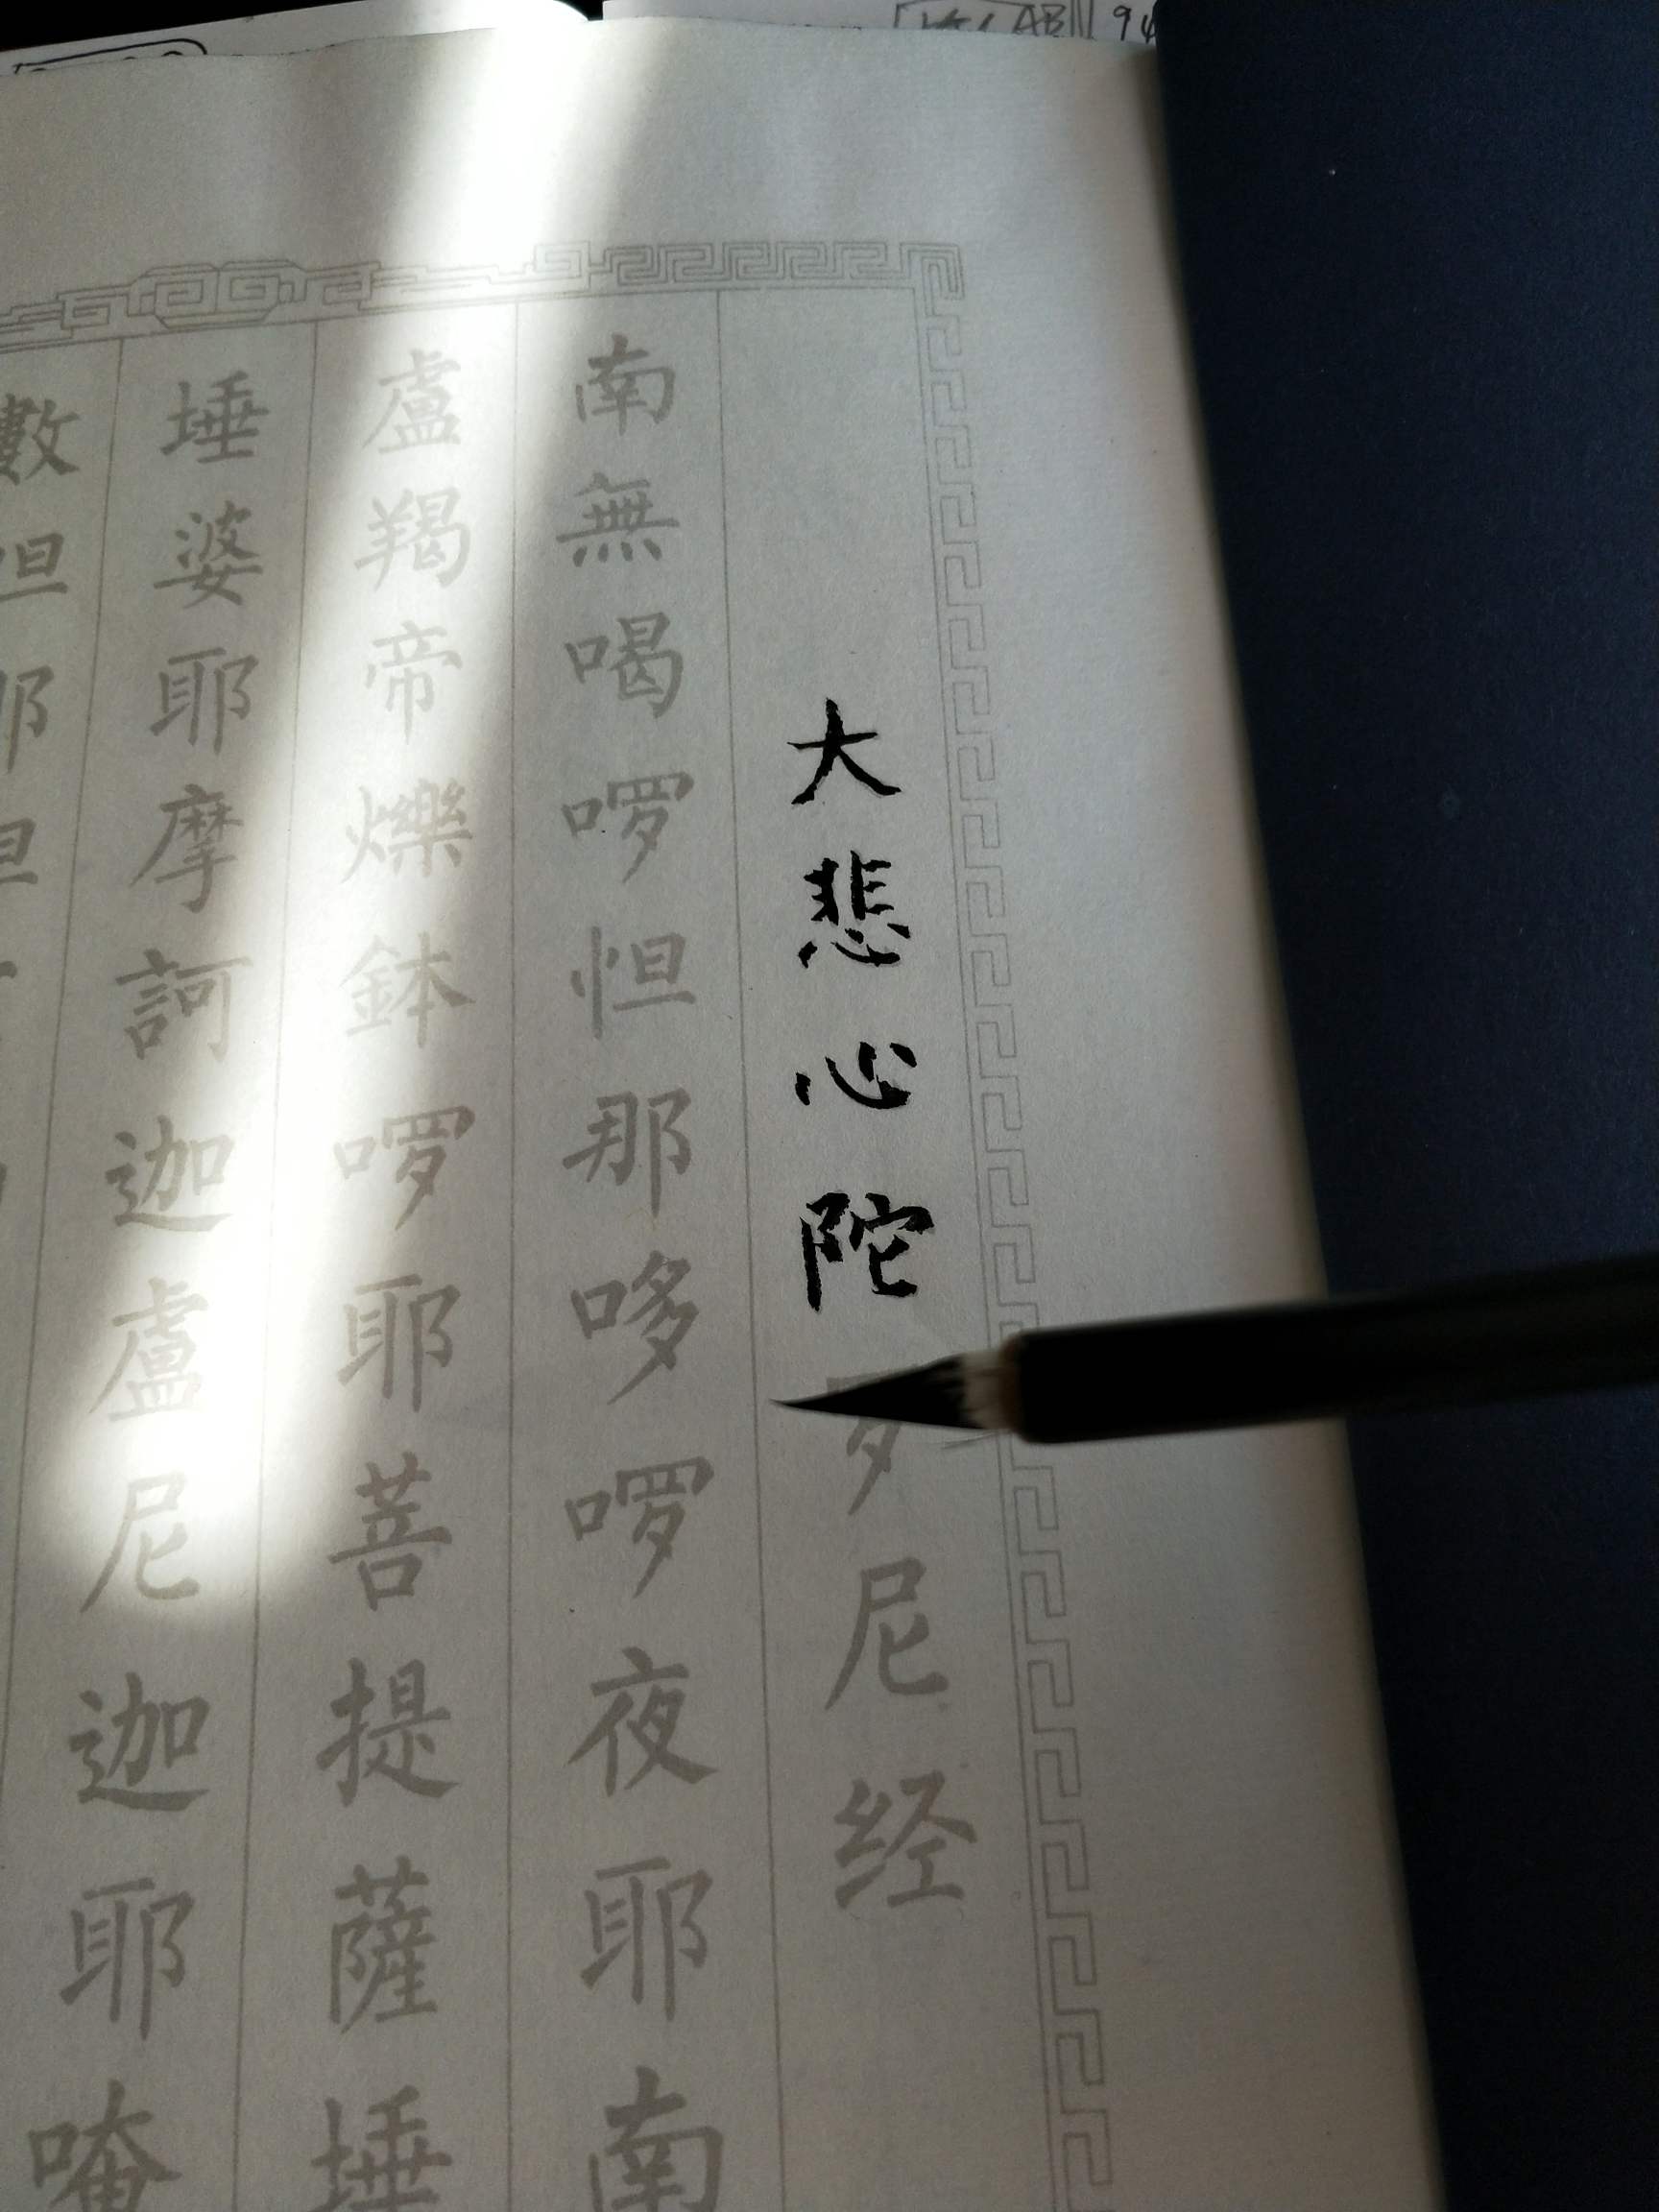 大悲心陀罗尼经
南無喝啰怛那哆啰夜耶南
盧羯帝爍鉢啰耶菩提薩埵
埵婆耶摩訶迦盧尼迦耶唵
數怛那怛